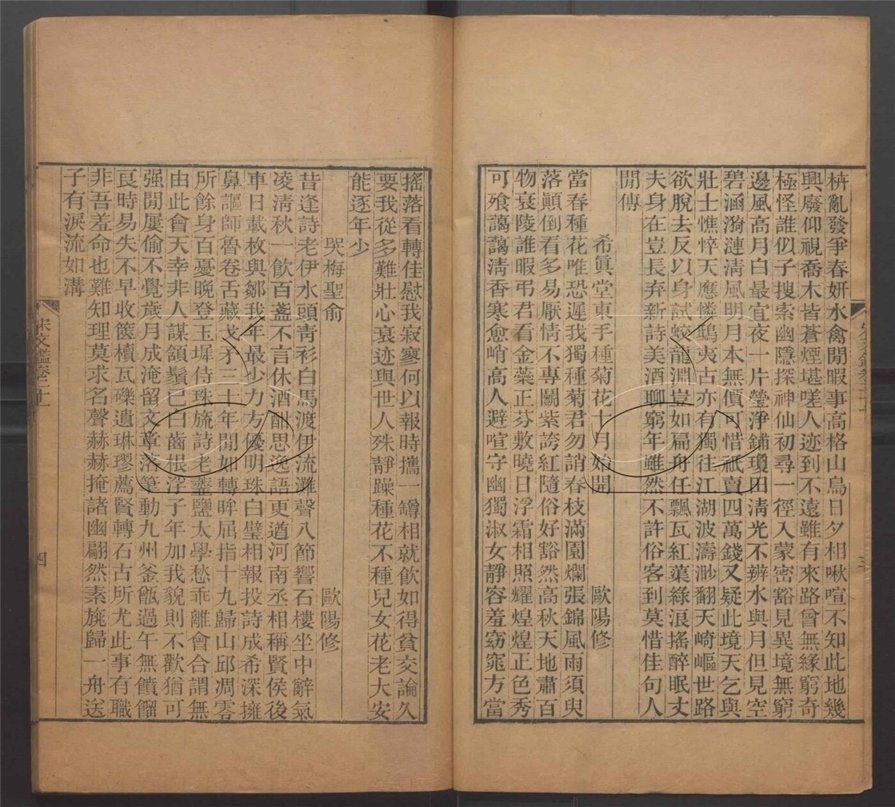 栟亂發爭春妍水禽閒暇事高格山鳥日夕相啾喧不知此地幾
興廢仰視喬木皆蒼煙堪嗟人迹到不遠雖有來路曾無緣窮奇
極怪誰似子搜索幽隱探神仙初尋一徑入蒙密豁見異境無窮
邊風高月白最宜夜一片瑩淨鋪瓊田清光不辨水與月但見空
碧涵漪漣清風明月本無價可惜祇賣四萬錢又疑此境天乞與
壯士憔悴天應憐鴟夷古亦有獨往江湖波濤渺翻天崎嶇世路
欲脫去反以身試蛟龍淵豈如扁舟任飄瓦紅蕖綠浪搖醉眠丈
夫身在豈長弃新詩美酒聊窮年雖然不許俗客到莫惜佳句人
閒傳
希眞堂東手種菊花十月始開
歐陽修
當春種花唯恐遲我獨種菊君勿誚春枝滿園爛張錦風雨須臾
落顚倒看多易厭情不專鬭紫誇紅隨俗好豁然高秋天地肅百
物衰陵誰暇弔君看金蘂正芬敷曉日浮霜相照耀煌煌正色秀
可飱藹藹清香寒愈峭高人避喧守幽獨淑女靜容羞窈窕方當
搖落看轉佳慰我寂寥何以報時攜一罇相就飲如得貧交論久
要我從多難壯心衰迹與世人殊靜躁種花不種兒女花老大安
能逐年少
哭梅聖俞
歐陽修
昔逢詩老伊水頭靑衫白馬渡伊流灘聲八節響石樓坐中辭氣
凌清秋一飲百盞不言休酒酣思逸語更遒河南丞相稱賢侯後
車日載枚與鄒我年最少力方優明珠白璧相報投詩成希深擁
鼻謳師魯卷舌藏戈矛三十年閒如轉眸屈指十九歸山邱凋零
所餘身百憂晚登玉墀侍珠旒詩老虀鹽太學愁乖離會合謂無
由此會天幸非人謀頷鬚已白齒根浮子年加我貌則不歡猶可
強閒屢偷不覺歲月成淹留文章落筆動九州釜甑過午無饙餾
良時易失不早收篋櫝瓦礫遺琳璆薦賢轉石古所尤此事有職
非吾羞命也難知理莫求名聲赫赫掩諸幽翩然素旐歸一舟送
子有淚流如溝
宋文鑑卷二十七
四